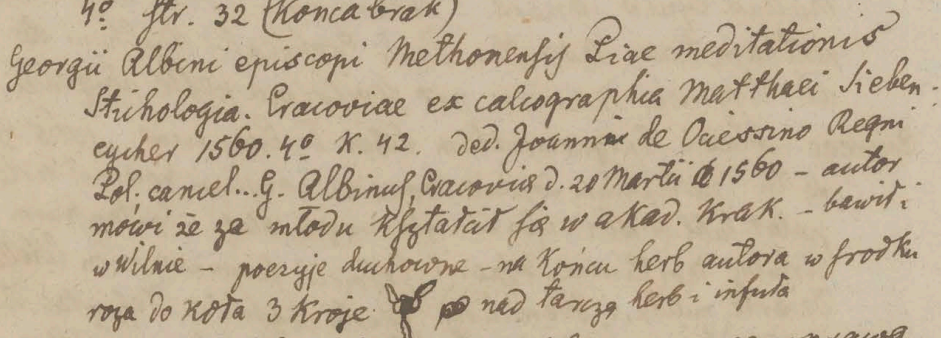 4º str. 32 (Końca brak)
Georgii Albini episcopi Methonensis Piae meditationis
Stichologia. Cracoviae ex calcographia Matthaei Sieben-
eycher 1560. 4º K. 42. ded. Joannis de Ociessino Regni
Pol. cancel... G. Albinus, Cracoviae d. 20 Martii 1560 - autor
mówi że za młodu kształcił się w akad. Krak. - bawił i
w Wilnie - poezyje duchowne - na końcu herb autora w środku
roza do koła 3 kroje nad tarczą herb i infuła